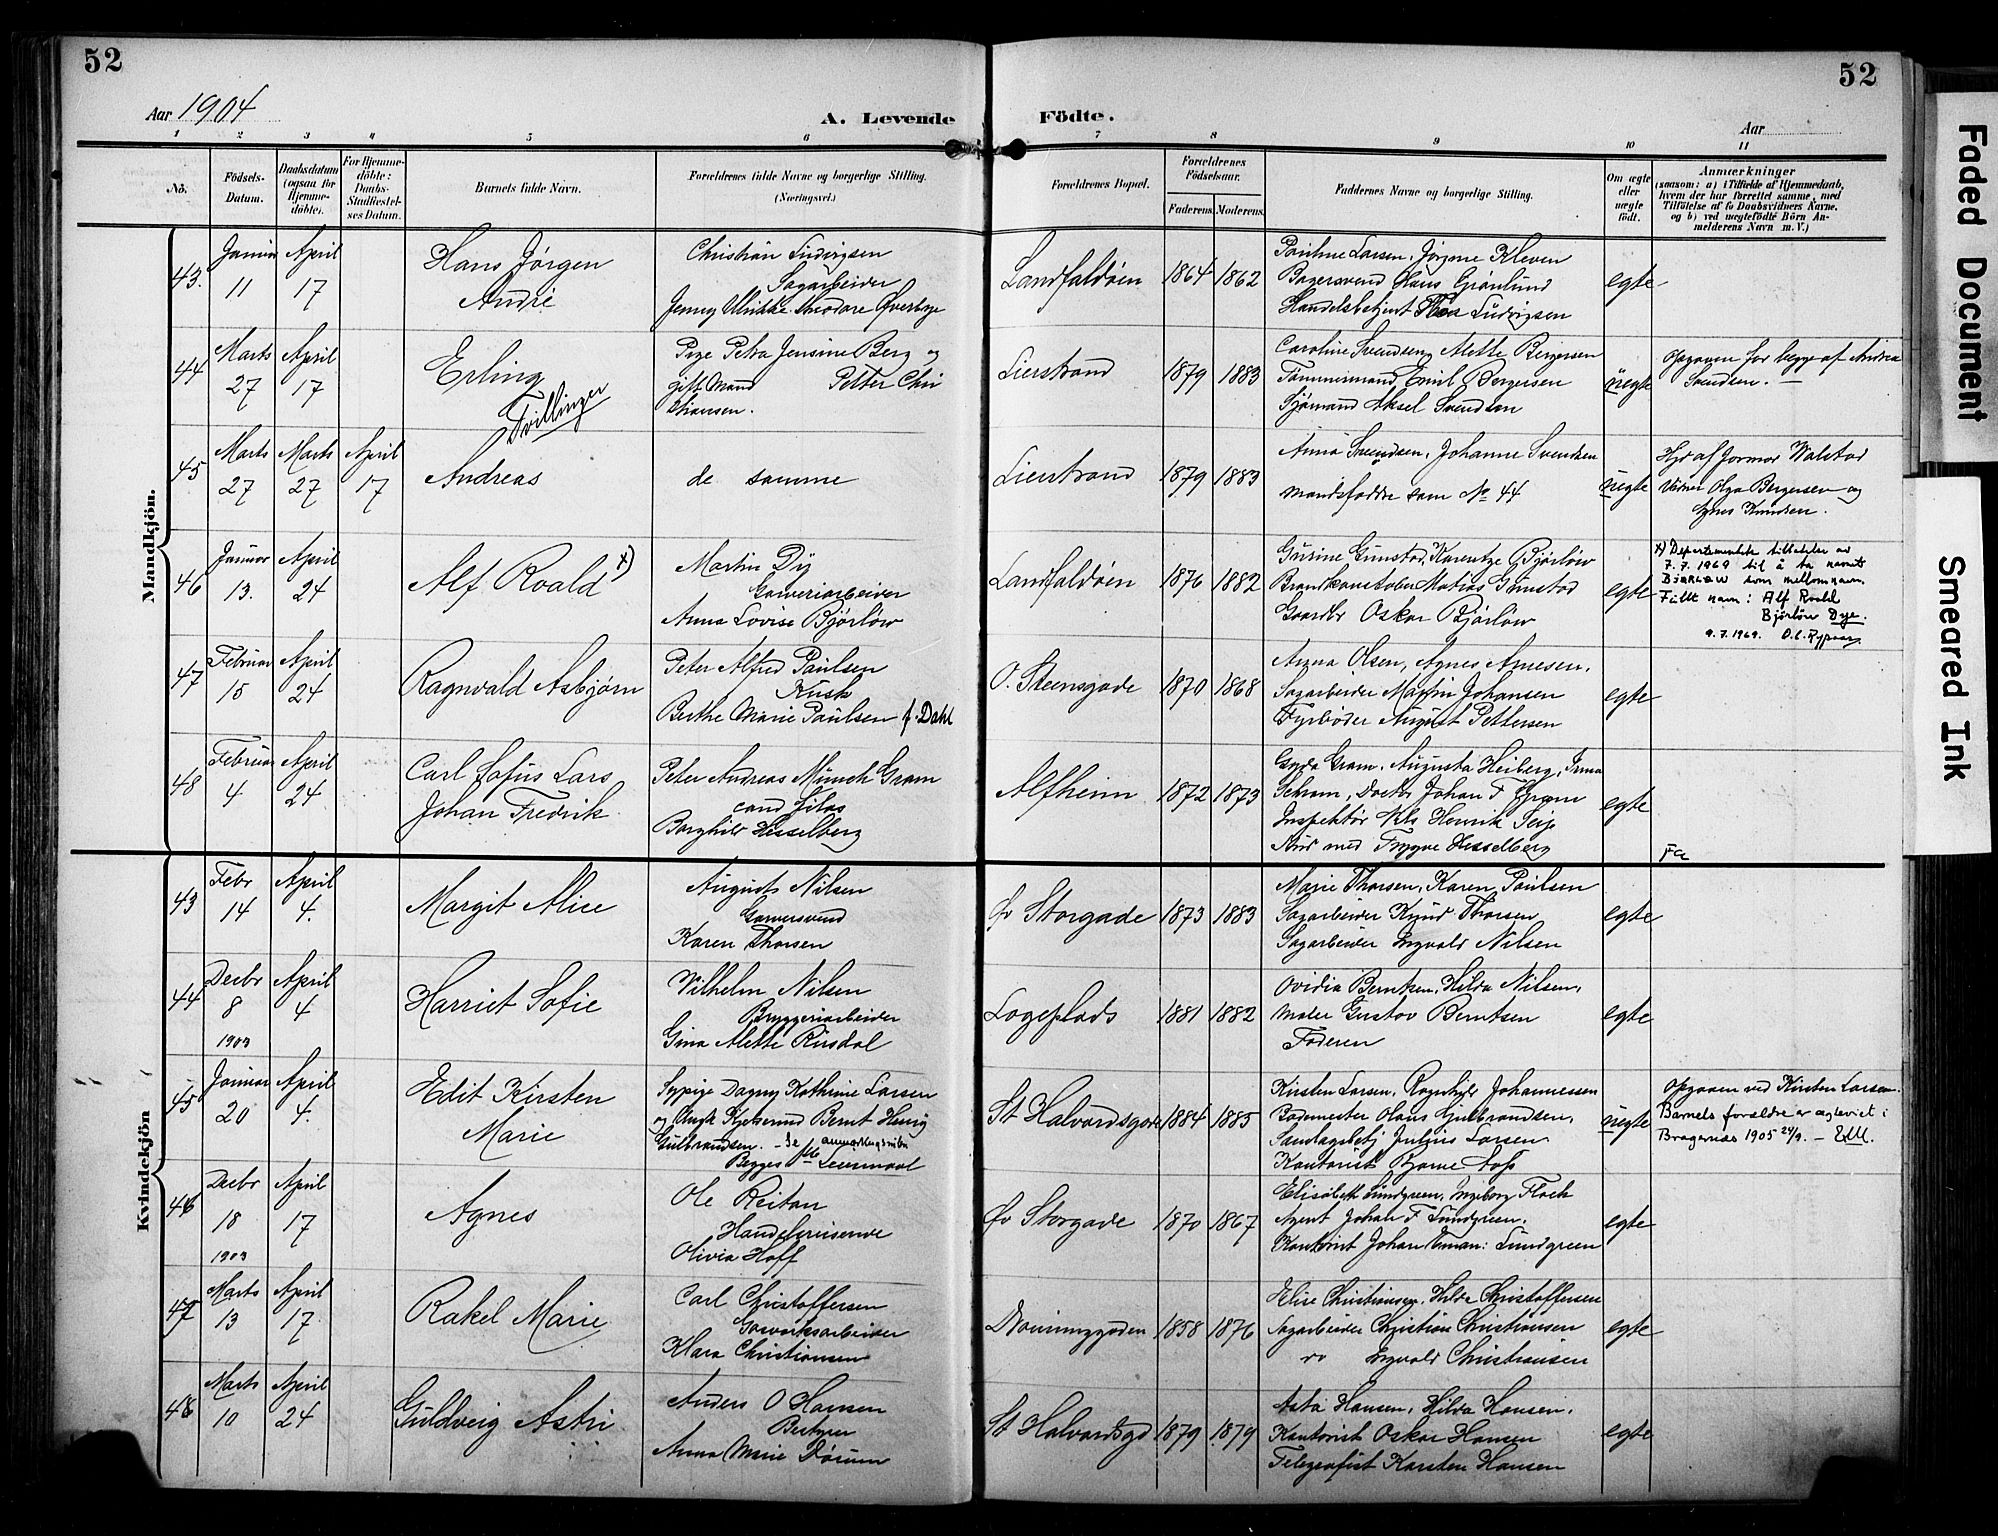 52
52
Aar 1904
A. Levende Födte.
Aar
1 2 3 4 5 6 7 8 9 10 11
No.
Födsels-Datum.
Daabsdatum (ogsaa for Hjemme-döbte).
For Hjemme-döbte: Daabs-Stadfæstel-ses Datum.
Barnets fulde Navn.
Forældrenes fulde Navne og borgerlige Stilling. (Næringsvei.)
Forældrenes Bopæl.
Forældrenes Födselsaar.
Faderens. Moderens.
Faddernes Navne og borgerlige Stilling.
Om ægte eller uægte födt.
Anmærkninger
(saasom: a) i Tilfælde af Hjemmedaab, hvem der har forrettet samme, med Tilföielse af to Daabsvidners Navne, og b) ved uægtefödte Börn An-melderens Navn m. V.)
Mandkjön.
43. Januar 11 April 17
Hans Jørgen
André
Christian Ludvigsen
Sagarbeider
Jenny Ulrikke Theodore Øverbye
Landfaldøien 1864 1862
Pauline Larsen, Jörgine Kleven
Bagersvend Hans Grønlund
Handelsbetjent Thos Ludvigsen
egte
44 Marts 27 April 17
Erling
Tvillinger
Pige Petra Jensine Berg og
gift Mand Petter Chri
stiansen.
Lierstrand 1879 1883
Caroline Svendsen, Alette Bergersen
Tömmermand Emil Bergersen
Sjømand Aksel Svendsen
uegte
Opgaven for begge af Andrea
Svendsen. —
45 Marts 27 Marts 27 April 17
Andreas
de samme
Lierstrand 1879 1883
Anna Svendsen, Johanne Svendsen
mandsfaddre som No 44
uegte
Hjd af Jormor Walstad
Vidner Olga Bergersen og
Agnes Knudsen.
46 Januar 13. April 24
Alf Roald x)
Martin Dÿ
Garveriarbeider
Anna Lovise Bjørløw
Landfaldøen 1876 1882
Gusine Gunstad, Karentze Bjørløw
Brandkonstabel Matias Gunstad
Gaardbr Oskar Bjørløw
egte
x) Departementets tillatelse av
7.7.1969 til å ta navnet
Bjørløw som mellomnavn.
Fullt navn: Alf Roald
Bjørløw Dye.
9.7.1969.
47 Februar 15 April 24
Ragnvald Asbjørn
Peter Alfred Paulsen
Kusk
Berthe Marie Paulsen f. Dahl
O. Steensgade 1870 1868
Anna Olsen, Agnes Arnesen.
Sagarbeider Martin Johansen
Fyrbøder August Pettersen
egte
48 Februar 4 April 24
Carl Sofus Lars
Johan Fredrik
Peter Andreas Münch Gram
cand filos
Borghild Hesselberg
Alfheim 1872 1873
Gyda Gram, Augusta Heiberg, Irma
Schram, Doctor Johan F Gram
Inspektør Nils Henrik Seip
Stud med Trygve Hesselberg
egte
Kvindekjön
43 Febr 14 April 4.
Margit Alice
August Nilsen
Garversvend
Karen Thorsen
Øv Storgade 1873 1883
Marie Thorsen, Karen Paulsen
Sagarbeider Knud Thorsen
Sagarbeider Ingvald Nilsen
egte
44 Decbr 8 1903 April 4
Harriet Sofie
Vilhelm Nilsen
Bryggeriarbeider
Gina Alette Rirsdal
Lögeplads 1881 1882
Ovidia Berntsen, Hilda Nilsen,
Maler Gustav Berntsen
Faderen
egte
45 Januar 20 April 4.
Edit Kirsten
Marie
Sypige Dagny Kathrine Larsen
og Ungk Kjelsmed Bernt Henrig
Gulbrandsen. – Se anmerkngsrubr
Begges 1ste Leiermaal
St Halvardsgade 1884 1885
Kirsten Larsen, Ragnhild Johannessen
Bademester Olaus Gulbrandsen,
Landagsbetj Julius Larsen
Kantorist Bjarne Aass
uegte
Opgaven ved Kirsten Larsen.
Barnets forældre er ægteviet i
Bragernæs 1905 24/9. – EM.
46 Decbr 18 1903 April 17
Agnes
Ole Reitan
Handelsreisende
Olivia Hoff
Øv Storgade 1870 1867
Elisabeth Lundgreen, Ingeborg Floch
Agent Johan F Lundgreen.
Kantorist Johan Lundgreen
egte
47 Marts 13 April 17
Rakel Marie
Carl Christoffersen
Gasværksarbeider
Klara Christiansen
Dronninggaden 1858 1876
Elise Christiansen, Hilda Christoffersen
Sagarbeider Christian Christiansen
do Ingvald Christiansen
egte
48 Marts 10 April 24
Guldveig Astri
Anders O Hansen
Bestyrer
Anna Marie Dörum
St Halvardsgd 1879 1879
Asta Hansen, Hilda Hansen,
Kantorist Oskar Hansen
Telegrafist Karsten Hansen
egte
Faded Document
Smeared Ink